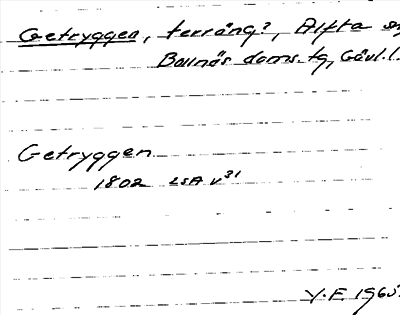 Getryggen, terräng?, Alfta sn
Bollnäs doms. tg, Gävl.l.
Getryggen
1802 LSA v31
Y.F. 1965